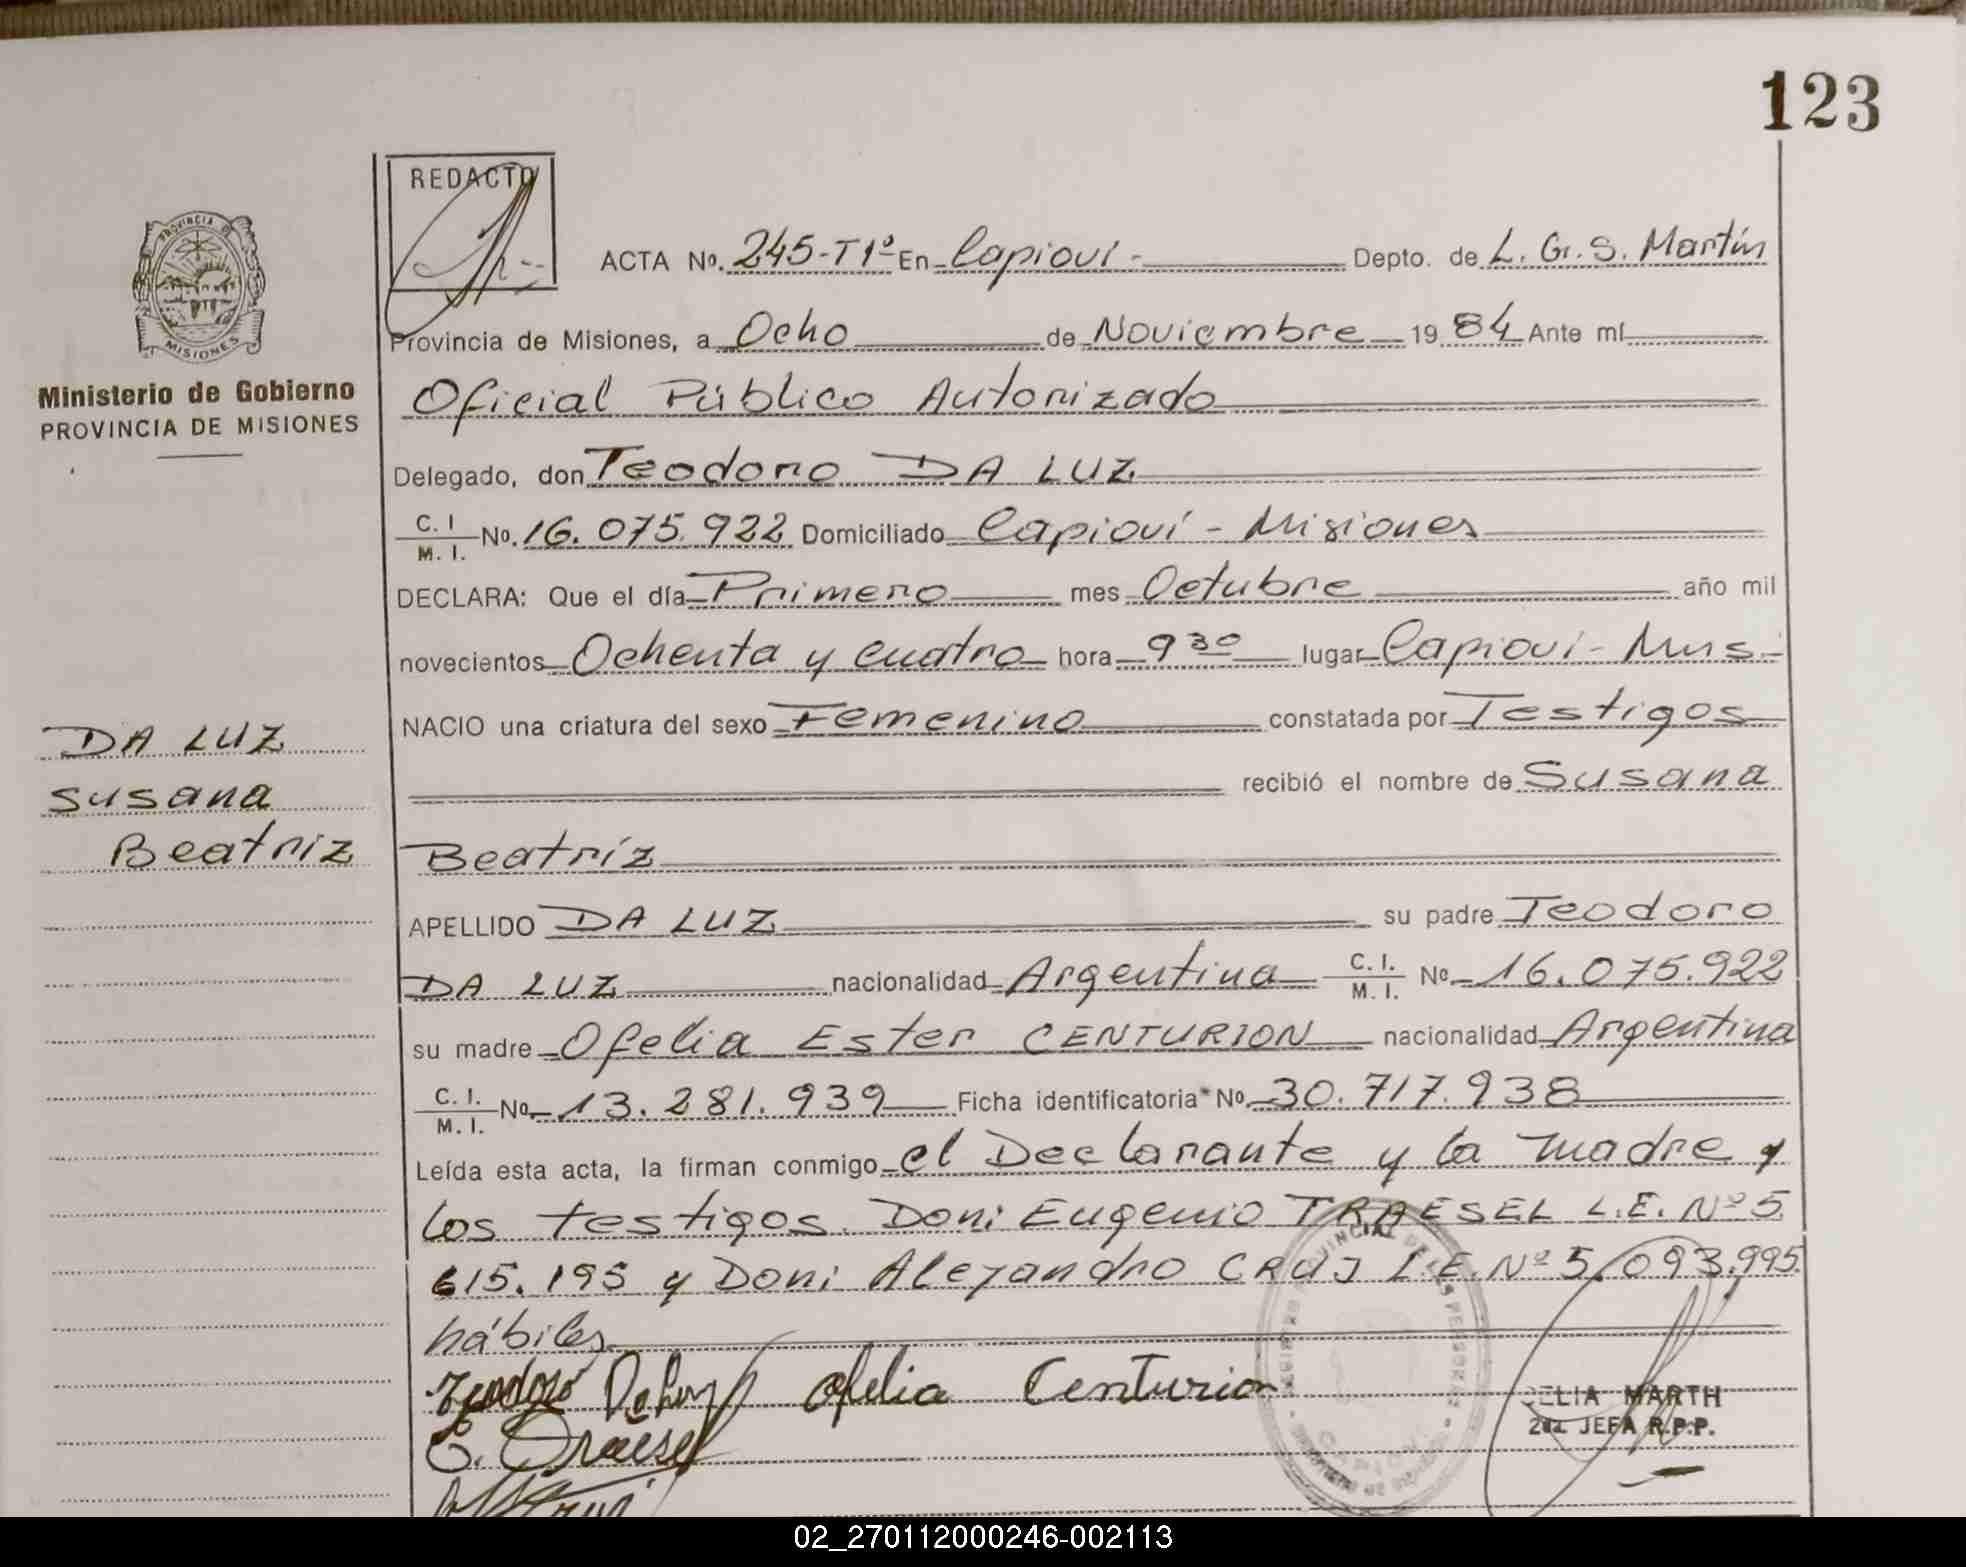 123
REDACTO
ACTA No. 245-T1º En Capioví - Depto. de L. G. S. Martín
PROVINCIA DE
MISIONES
Provincia de Misiones, a Ocho de Noviembre 1984 Ante mí
Ministerio de Gobierno
PROVINCIA DE MISIONES
Oficial Público Autorizado
Delegado, don Teodoro DA LUZ
C. I / M. I. No. 16.075.922 Domiciliado Capioví - Misiones
DECLARA: Que el día Primero mes Octubre año mil
novecientos Ochenta y cuatro hora 9 30 lugar Capioví - Mnes.
NACIO una criatura del sexo Femenino constatada por Testigos
recibió el nombre de Susana
Beatríz
DA LUZ
Susana
Beatriz
APELLIDO DA LUZ su padre Teodoro
DA LUZ nacionalidad Argentina C. I. / M. I. No 16.075.922
su madre Ofelia Ester CENTURION nacionalidad Argentina
C. I. / M. I. No. 13.281.939 Ficha identificatoria No. 30.717.938
Leída esta acta, la firman conmigo el Declarante y la madre y
los testigos. Don: Eugenio TRAESEL L.E. Nº 5
615.195 y Don: Alejandro CRUJ L.E. Nº 5.093.995
hábiles
Teodoro Da Luz Ofelia Centurion
E. Traesel
CELIA MARTH
2da JEFA R.P.P.
02_270112000246-002113